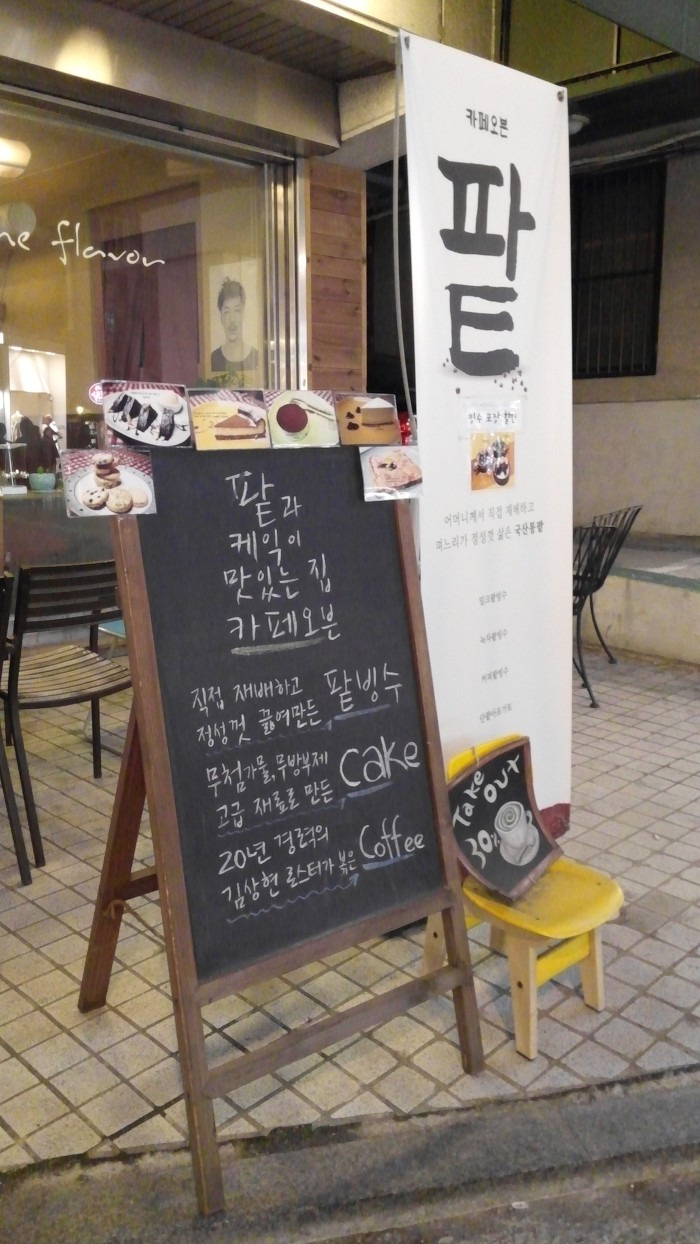 flavor
카페오븐
팥
빙수 포장 할인
어머니께서 직접 재배하고
며느리가 정성껏 삶은 국산통팥
밀크팥빙수
녹차팥빙수
커피팥빙수
단팥아포가토
팥과
케익이
맛있는 집
카페오븐
직접 재배하고
정성껏 끓여만든 팥빙수
무첨가물, 무방부제
고급 재료로 만든 Cake
20년 경력의
김상현 로스터가 볶은 Coffee
Take
out
30%